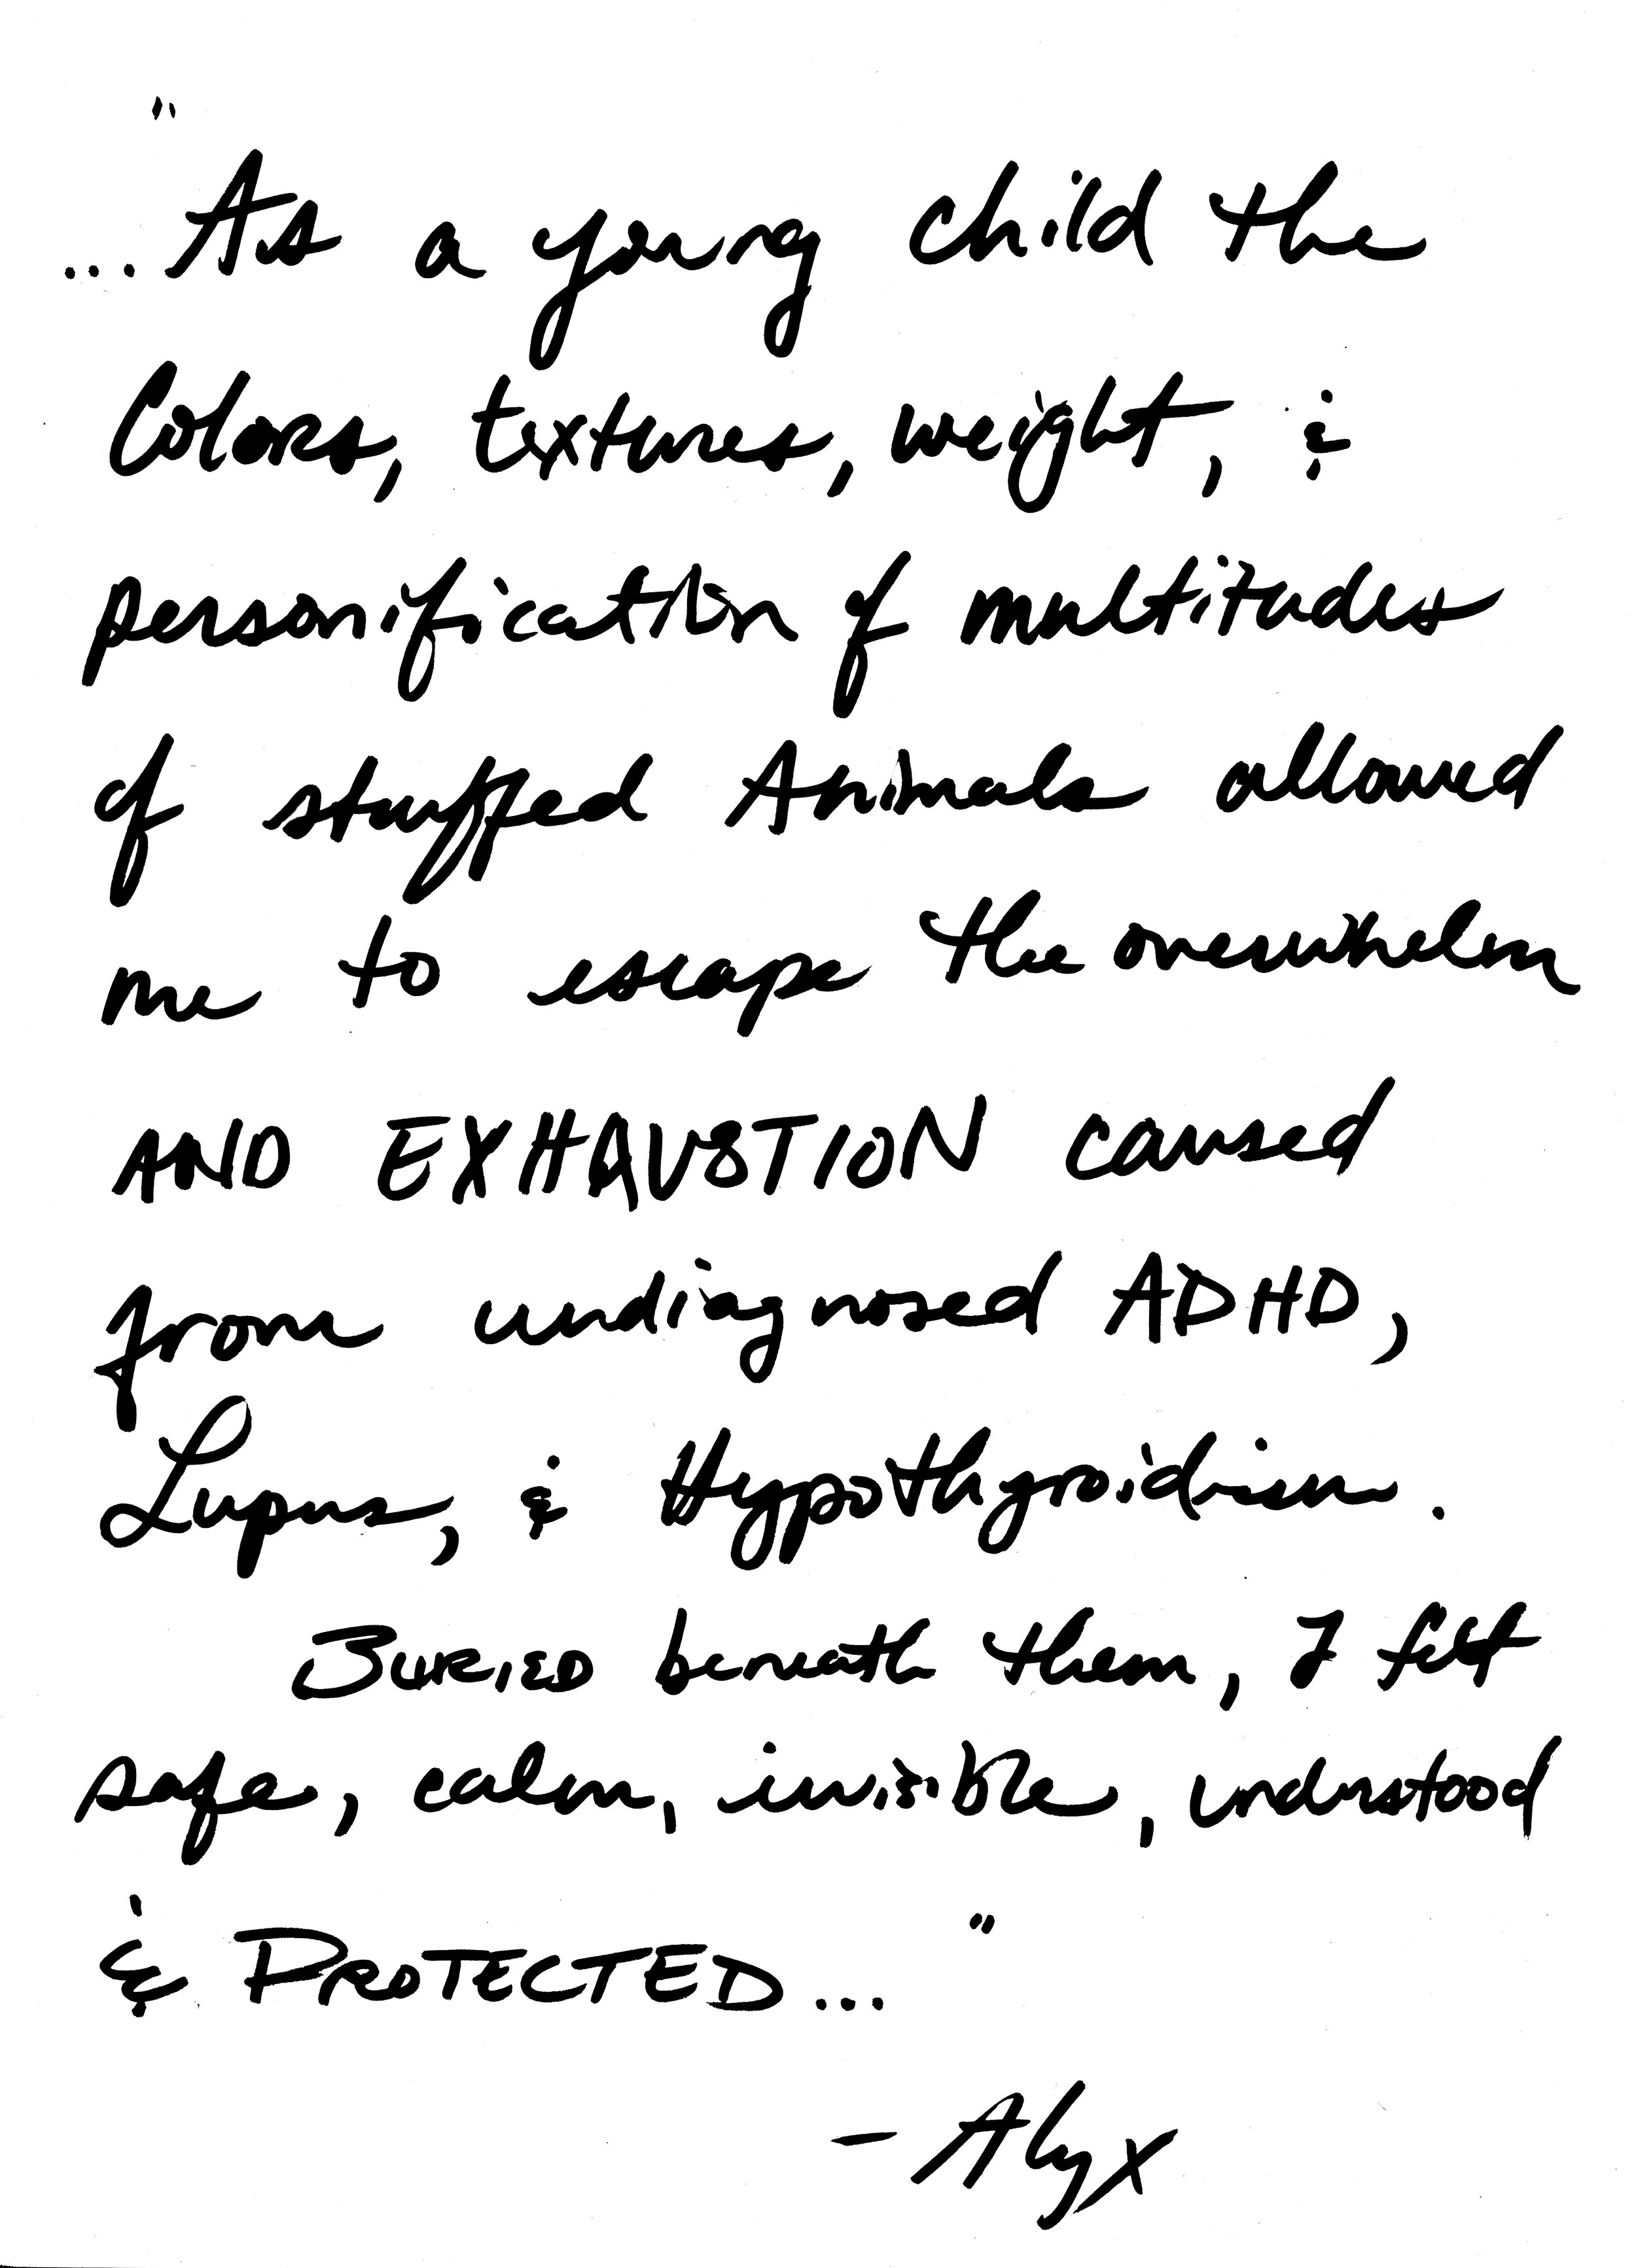 "
...As a young child the
Colors, textures, weight, &
personification of multitudes
of stuffed Animals allowed
me to escape the overwhelm
AND EXHAUSTION caused
from undiagnosed ADHD,
Lupus, & Hypothyroidism.
BURIED beneath them, I felt
safe, calm, invisible, understood
& PROTECTED..."
- Alyx